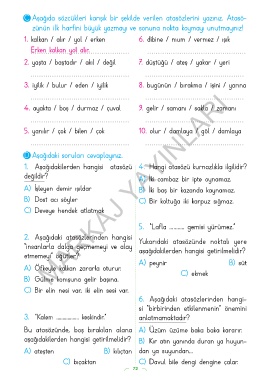 Aşağıda sözcükleri karışık bir şekilde verilen atasözlerini yazınız. Atasö-
zünün ilk harfini büyük yazmayı ve sonuna nokta koymayı unutmayınız!
1. kalkan / alır / yol / erken
Erken kalkan yol alır.
2. yaşta / baştadır / akıl / değil
3. iyilik / bulur / eden / iyilik
4. ayakta / boş / durmaz / çuval
5. yanılır / çok / bilen / çok
6. dibine / mum / vermez / ışık
7. düştüğü / ateş / yakar / yeri
8. bugünün / bırakma / işini / yarına
9. gelir / samanı / sakla / zamanı
10. olur / damlaya / göl / damlaya
Aşağıdaki soruları cevaplayınız.
1. Aşağıdakilerden hangisi atasözü
değildir?
A) İşleyen demir ışıldar
B) Dost acı söyler
C) Deveye hendek atlatmak
2. Aşağıdaki atasözlerinden hangisi
"insanlarla dalga geçmemeyi ve alay
etmemeyi" öğütler?
A) Öfkeyle kalkan zararla oturur.
B) Gülme komşuna gelir başına.
C) Bir elin nesi var, iki elin sesi var.
3. "Kalem .......... keskindir."
Bu atasözünde, boş bırakılan alana
aşağıdakilerden hangisi getirilmelidir?
A) ateşten B) kılıçtan
C) bıçaktan
4. Hangi atasözü kurnazlıkla ilgilidir?
A) İki cambaz bir ipte oynamaz.
B) İki baş bir kazanda kaynamaz.
C) Bir koltuğa iki karpuz sığmaz.
5. "Lafla .......... gemisi yürümez."
Yukarıdaki atasözünde noktalı yere
aşağıdakilerden hangisi getirilmelidir?
A) peynir B) süt
C) ekmek
6. Aşağıdaki atasözlerinden hangi-
si "birbirinden etkilenmenin" önemini
anlatmamaktadır?
A) Üzüm üzüme baka baka kararır.
B) Kır atın yanında duran ya huyun-
dan ya suyundan...
C) Davul bile dengi dengine çalar.
72